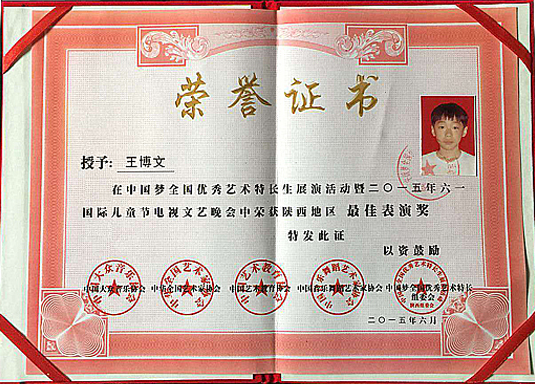 荣誉证书
授予：王博文
在中国梦全国优秀艺术特长生展演活动暨二〇一五年六一
国际儿童节电视文艺晚会中荣获陕西地区 最佳表演奖
特发此证
以资鼓励
中国大众音乐协会 中华全国艺术家协会 中国艺术教育协会 中国音乐舞蹈艺术家协会 中国梦全国优秀艺术特长
组委会
陕西组委会
二〇一五年六月